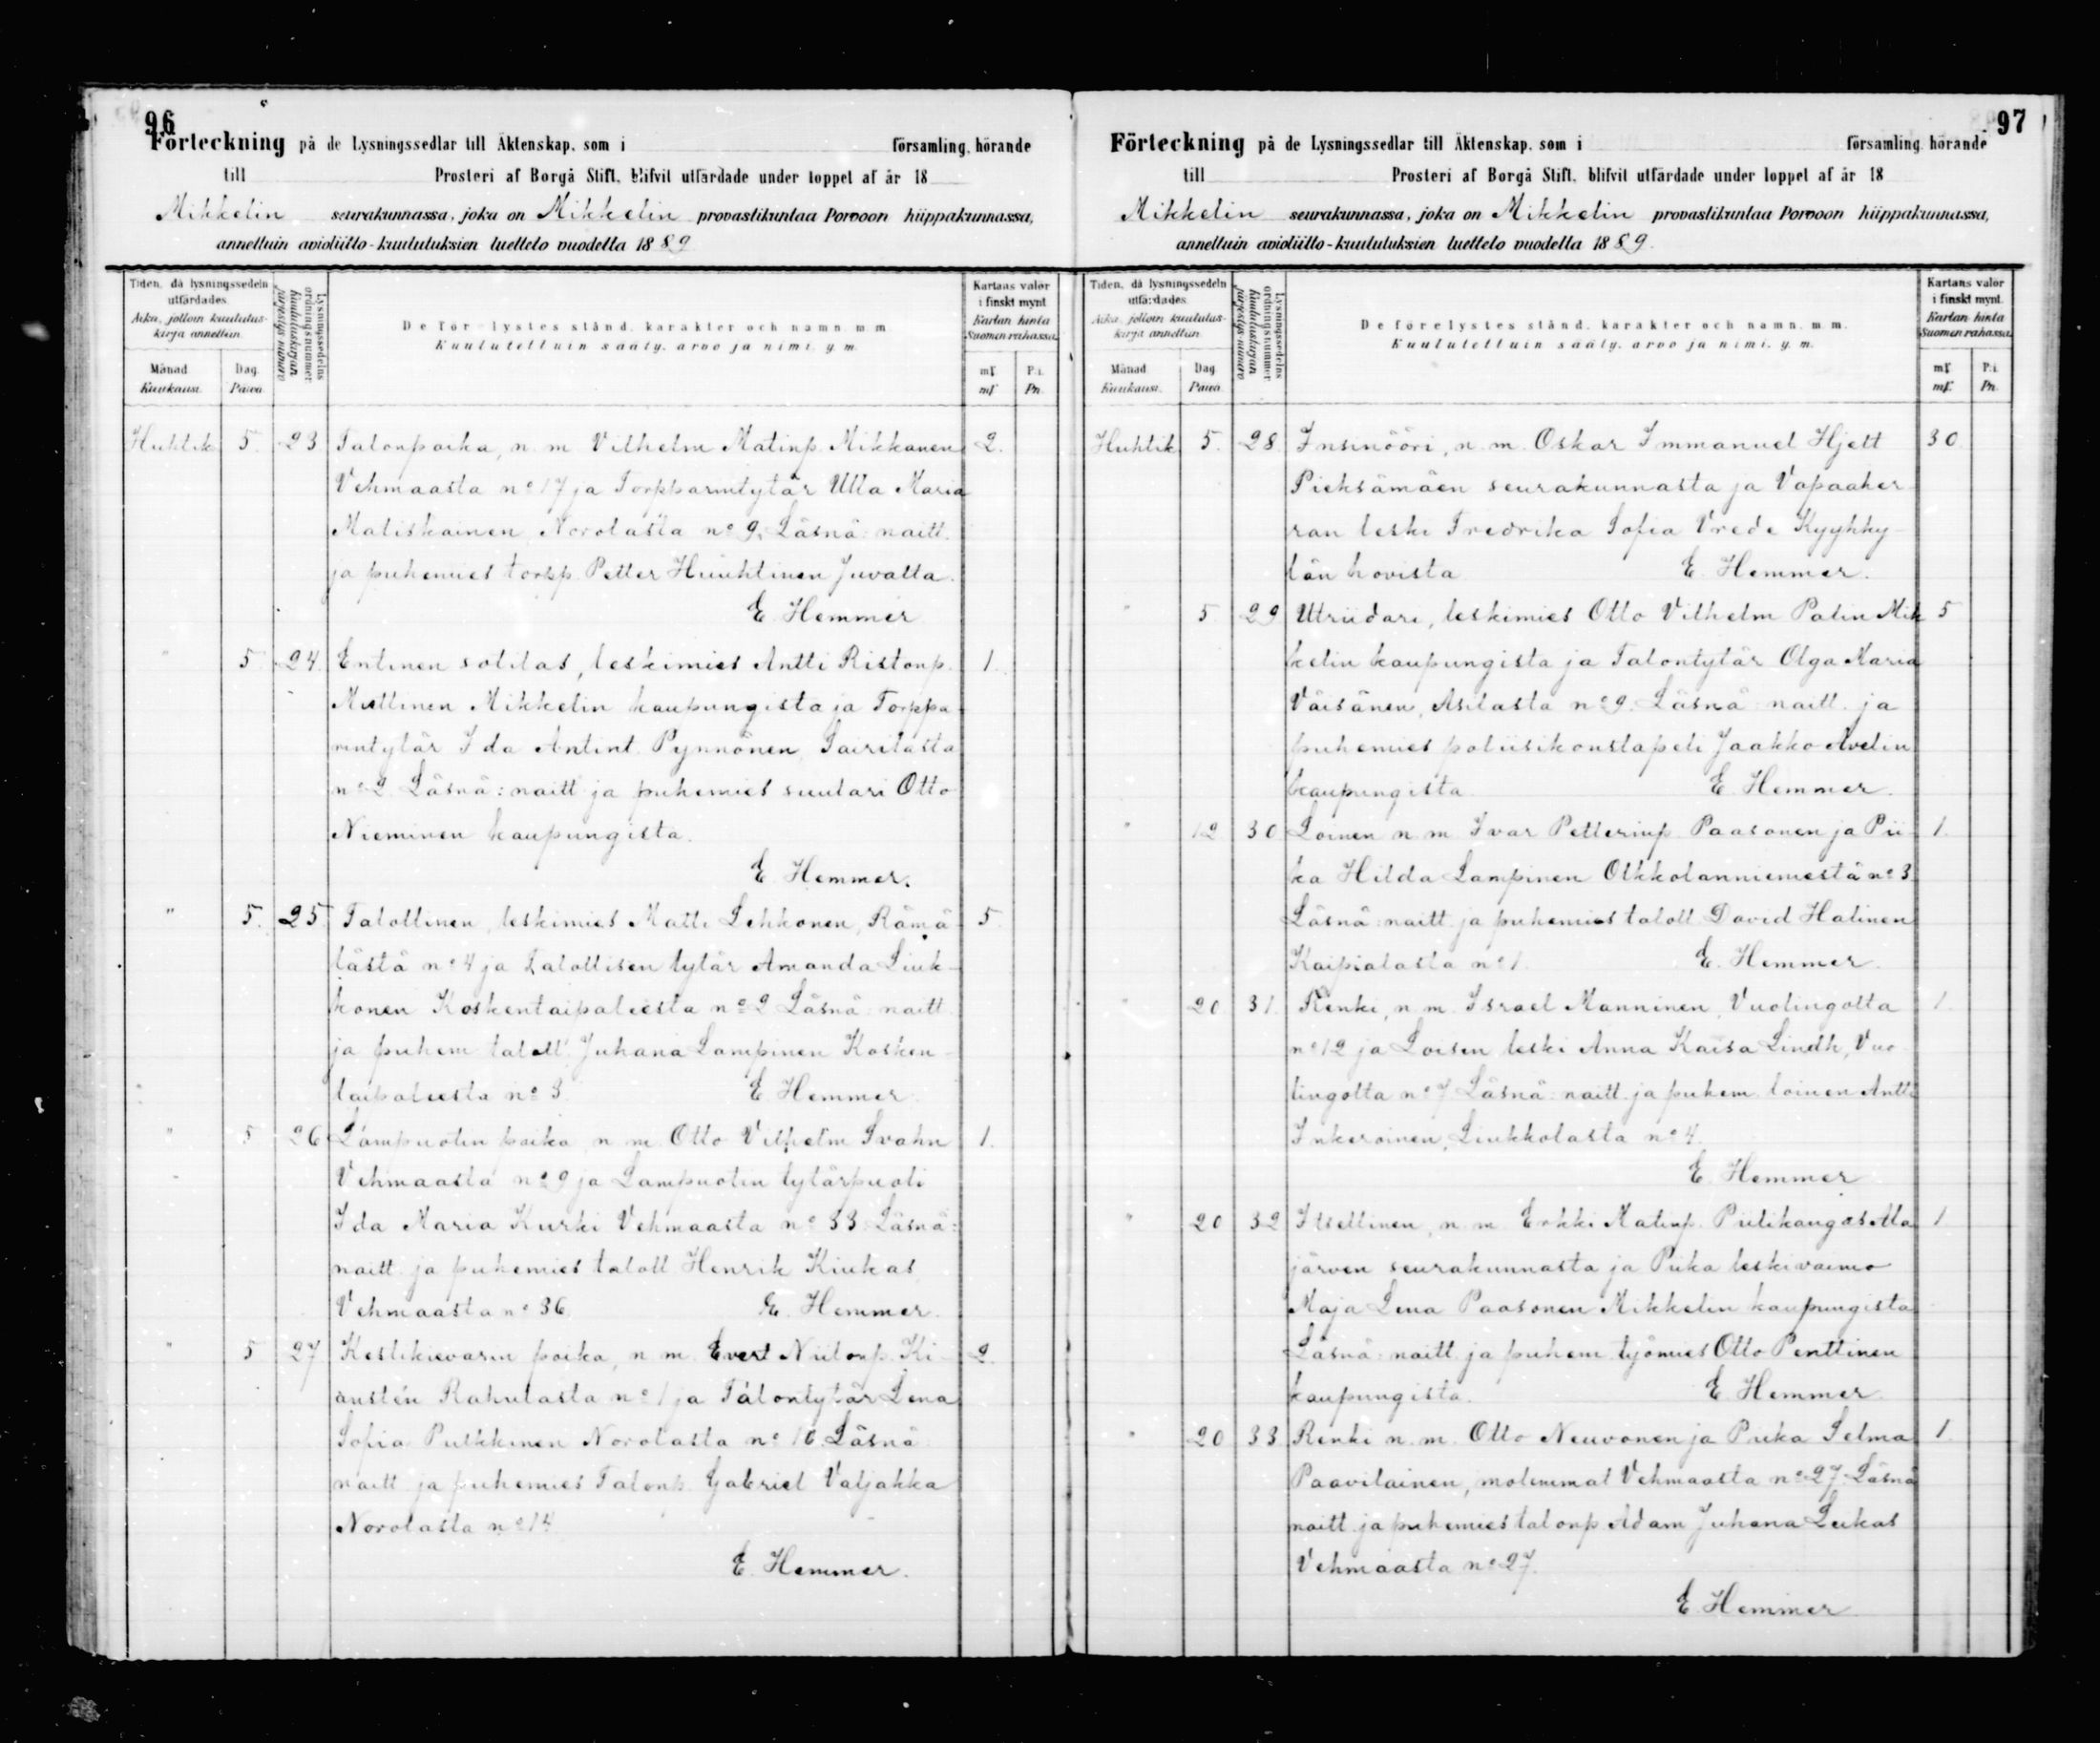 96
Förteckning på de Lysningssedlar till Äktenskap, som i församling, hörande
till Prosteri af Borgå Stift, blifvit utfärdade under loppet af år 18
Mikkelin seurakunnassa, joka on Mikkelin provastikuntaa Porvoon hiippakunnassa,
annettuin avioliitto-kuulutuksien luettelo vuodelta 1889
Tiden, då lysningssedeln utfärdades.
Aika, jolloin kuulutus-kirja annettiin.
Lysningssedelns ordningsnummer
Kuulutuskirjan järjestys-numero
De förelystes stånd, karakter och namn m.m.
Kuulutettuin sääty, arvo ja nimi, y.m.
Kartans valör i finskt mynt
Kartan hinta Suomen rahassa
Månad Dag. mk P:i.
Kuukausi. Päivä mk Pn.
Huhtik 5. 23 Talonpoika, n. m. Vilhelm Matinp. Mikkanen 2.
Vehmaasta no 17 ja Torpparintytär Ulla Maria
Matiskainen, Norolasta no 9. Läsnä: naitt.
ja puhemies torpp. Petter Hiuhtinen Juvalta.
E. Hemmer
" 5 24. Entinen sotilas, leskimies Antti Ristonp. 1.
Mullinen Mikkelin kaupungista ja Torppa
rintytär Ida Antint. Pynnönen, Sairilasta
no 2. Läsnä: naitt ja puhemies suutari Otto
Nieminen kaupungista.
E. Hemmer.
" 5. 25 Talollinen, leskimies Matti Lehkonen, Rämä 5.
lästä no 4 ja Talollisen tytär Amanda Liuk-
konen Koskentaipaleesta no 2 Läsnä: naitt
ja puhem. taloll. Juhana Lampinen Kosken-
taipaleesta no 3. E. Hemmer.
" 5 26 Lampuotin poika n. m. Otto Vilhelm Svahn 1.
Vehmaasta no 9 ja Lampuotin tytärpuoli
Ida Maria Kurki Vehmaasta no 33. Läsnä:
naitt. ja puhemies taloll Henrik Kiukas
Vehmaasta no 36. E. Hemmer.
" 5 27 Kestikievarin poika, n. m. Evert Niilonp. Ki- 2.
austén Rahulasta no 1 ja Talontytär Lena
Sofia Pulkkinen Norolasta no 16. Läsnä
naitt. ja puhemies Talonp. Gabriel Valjakka
Norolasta no 14
E. Hemmer.
97
Förteckning på de Lysningssedlar till Äktenskap, som i församling, hörande
till Prosteri af Borgå Stift, blifvit utfärdade under loppet af år 18
Mikkelin seurakunnassa, joka on Mikkelin provastikuntaa Porvoon hiippakunnassa,
annettuin avioliitto-kuulutuksien luettelo vuodelta 1889.
Tiden, då lysningssedeln utfärdades
Aika, jolloin kuulutus-kirja annettiin.
Lysningssedelns ordningsnummer
Kuulutuskirjan järjestys-numero
De förelystes stånd, karakter och namn, m.m.
Kuulutettuin sääty, arvo ja nimi, y.m.
Kartans valör i finskt mynt.
Kartan hinta Suomen rahassa.
Månad Dag mk P:i
Kuukausi. Päivä mk. Pn.
Huhtik 5. 28. Insinööri, n. m. Oskar Immanuel Hjelt 30
Pieksämäen seurakunnasta ja Vapaaher
ran leski Fredrika Sofia Vrede Kyyhky-
län hovista E. Hemmer.
" 5 29 Utriidari, leskimies Otto Vilhelm Palin Mik 5
kelin kaupungista ja Talontytär Olga Maria
Väisänen, Asilasta no 9. Läsnä: naitt. ja
puhemies poliisikonstapeli Jaakko Avelin
kaupungista E. Hemmer.
" 12 30 Loinen n. m. Ivar Petterinp. Paasonen ja Pii 1.
ka Hilda Lampinen Olkkolanniemestä no 3
Läsnä: naitt. ja puhemies taloll. David Halinen
Kaipialasta no 1. E. Hemmer.
" 20 31. Renki, n. m. Israel Manninen, Vuolingolta 1.
no 12 ja Loisen leski Anna Kaisa Lindh, Vuo
lingolta no 7. Läsnä: naitt. ja puhem. loinen Antti
Inkeroinen, Liukkolasta no 4.
E. Hemmer
" 20 32 Itsellinen, n. m. Erkki Matinp. Piilikangas Ala 1
järven seurakunnasta ja Piika leskivaimo
Maja Lena Paasonen Mikkelin kaupungista
Läsnä: naitt. ja puhem. työmies Otto Penttinen
kaupungista. E. Hemmer
" 20 33. Renki n. m. Otto Neuvonen ja Piika Selma 1.
Paavilainen, molemmat Vehmaasta no 27. Läsnä
naitt. ja puhemies talonp Adam Juhana Leikas
Vehmaasta no 27.
E. Hemmer